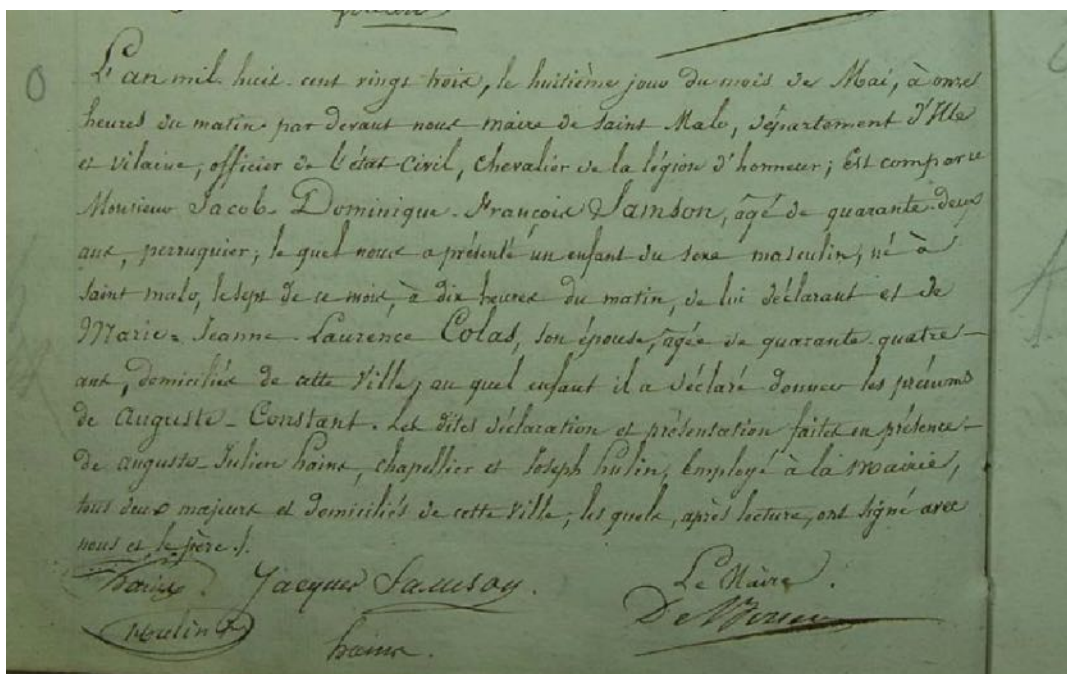 L'an mil huit cent vingt trois, le huitième jour du mois de Mai, à onze
heures du matin par devant nous maire de Saint Malo, département d'Ille
et vilaine, officier de l'état civil, chevalier de la légion d'honneur; Est comparu
Monsieur Jacob-Dominique-François Samson, âgé de quarante-deux
ans, perruquier; le quel nous a présenté un enfant du sexe masculin, né à
Saint malo, le sept de ce mois, à dix heures du matin, de lui déclarant et de
Marie-Jeanne-Laurence Colas, son épouse, agée de quarante-quatre
ans, domiciliés de cette Ville, au quel enfant il a déclaré donner les prénoms
de Auguste-Constant. Les dites déclaration et présentation faites en présence
de auguste-Julien hains, chapellier et Joseph hulin, Employé à la mairie,
tous deux majeurs et domiciliés de cette Ville; les quels, après lecture, ont signé avec
nous et le père./.
Jacques Samson. Le Maire.
hains.